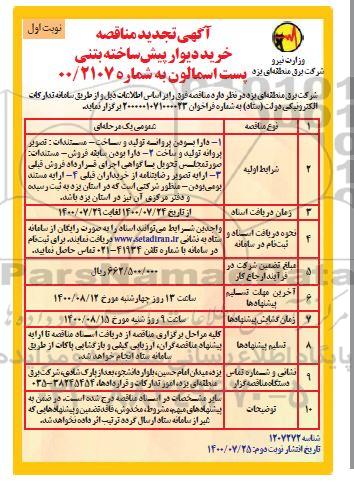 نوبت اول
آگهی تجدید مناقصه
خرید دیوار پیش ساخته بتنی
پست اسمالون به شماره ۰۰/۲۱۰۷
وزارت نیرو
شرکت برق منطقه‌ای یزد
شرکت برق منطقه‌ای یزد در نظر دارد مناقصه فوق را بر اساس اطلاعات ذیل و از طریق سامانه تدارکات
الکترونیکی دولت (ستاد) به شماره فراخوان ۲۰۰۰۰۰۱۰۷۱۰۰۰۰۲۳ برگزار نماید.
۱ نوع مناقصه عمومی یک مرحله‌ای
۲ شرایط اولیه
۱- دارا بودن پروانه تولید و ساخت - مستندات : تصویر
پروانه تولید و ساخت ۲- دارا بودن سابقه فروش - مستندات:
صورتمجلس تحویل یا گواهی اجرای قرارداد فروش قبلی
۳- ارایه تصویر رضایتنامه از خریداران قبلی ۴- ارایه مستند
بومی‌بودن - منظور شرکتی است که در استان یزد به ثبت رسیده
و دفتر مرکزی آن نیز در استان یزد باشد.
۳ زمان دریافت اسناد از تاریخ ۱۴۰۰/۰۷/۲۴ لغایت ۱۴۰۰/۰۷/۲۹
۴ نحوه دریافت اسناد و ثبت‌نام در سامانه
واجدین شرایط می‌توانند اسناد را به صورت رایگان از سامانه
ستاد به نشانی www.setadiran.ir دریافت نمایند. برای ثبت‌نام
در سامانه با شماره تلفن ۴۱۹۳۴-۰۲۱ تماس حاصل نمایید.
۵ مبلغ تضمین شرکت در فرآیند ارجاع کار ۶۶۲/۵۰۰/۰۰۰ ریال
۶ آخرین مهلت تسلیم پیشنهادها ساعت ۱۳ روز چهارشنبه مورخ ۱۴۰۰/۰۸/۱۲
۷ زمان گشایش پیشنهادها ساعت ۹ روز شنبه مورخ ۱۴۰۰/۰۸/۱۵
۸ تسلیم پیشنهادها
کلیه مراحل برگزاری مناقصه از دریافت اسناد مناقصه تا ارایه
پیشنهاد مناقصه‌گران، ارزیابی کیفی و بازگشایی پاکات از طریق
سامانه ستاد انجام خواهد شد.
۹ نشانی و شماره تماس دستگاه مناقصه‌گزار
یزد، میدان امام حسین، بلوار دانشجو، بعد از پارک شادی، شرکت برق
منطقه‌ای یزد، امور تدارکات و قراردادها، ۳۸۲۴۵۴۵۴-۰۳۵
۱۰ توضیحات
سایر مشخصات در اسناد مناقصه درج شده است. در ضمن به
پیشنهادهای مبهم، مشروط، مخدوش، فاقد تضمین و پیشنهادهایی که
غیر از سامانه ستاد ارسال گردد ترتیب اثر داده نخواهد شد.
شناسه ۱۲۰۷۲۷۲
تاریخ انتشار نوبت دوم: ۱۴۰۰/۰۷/۲۵